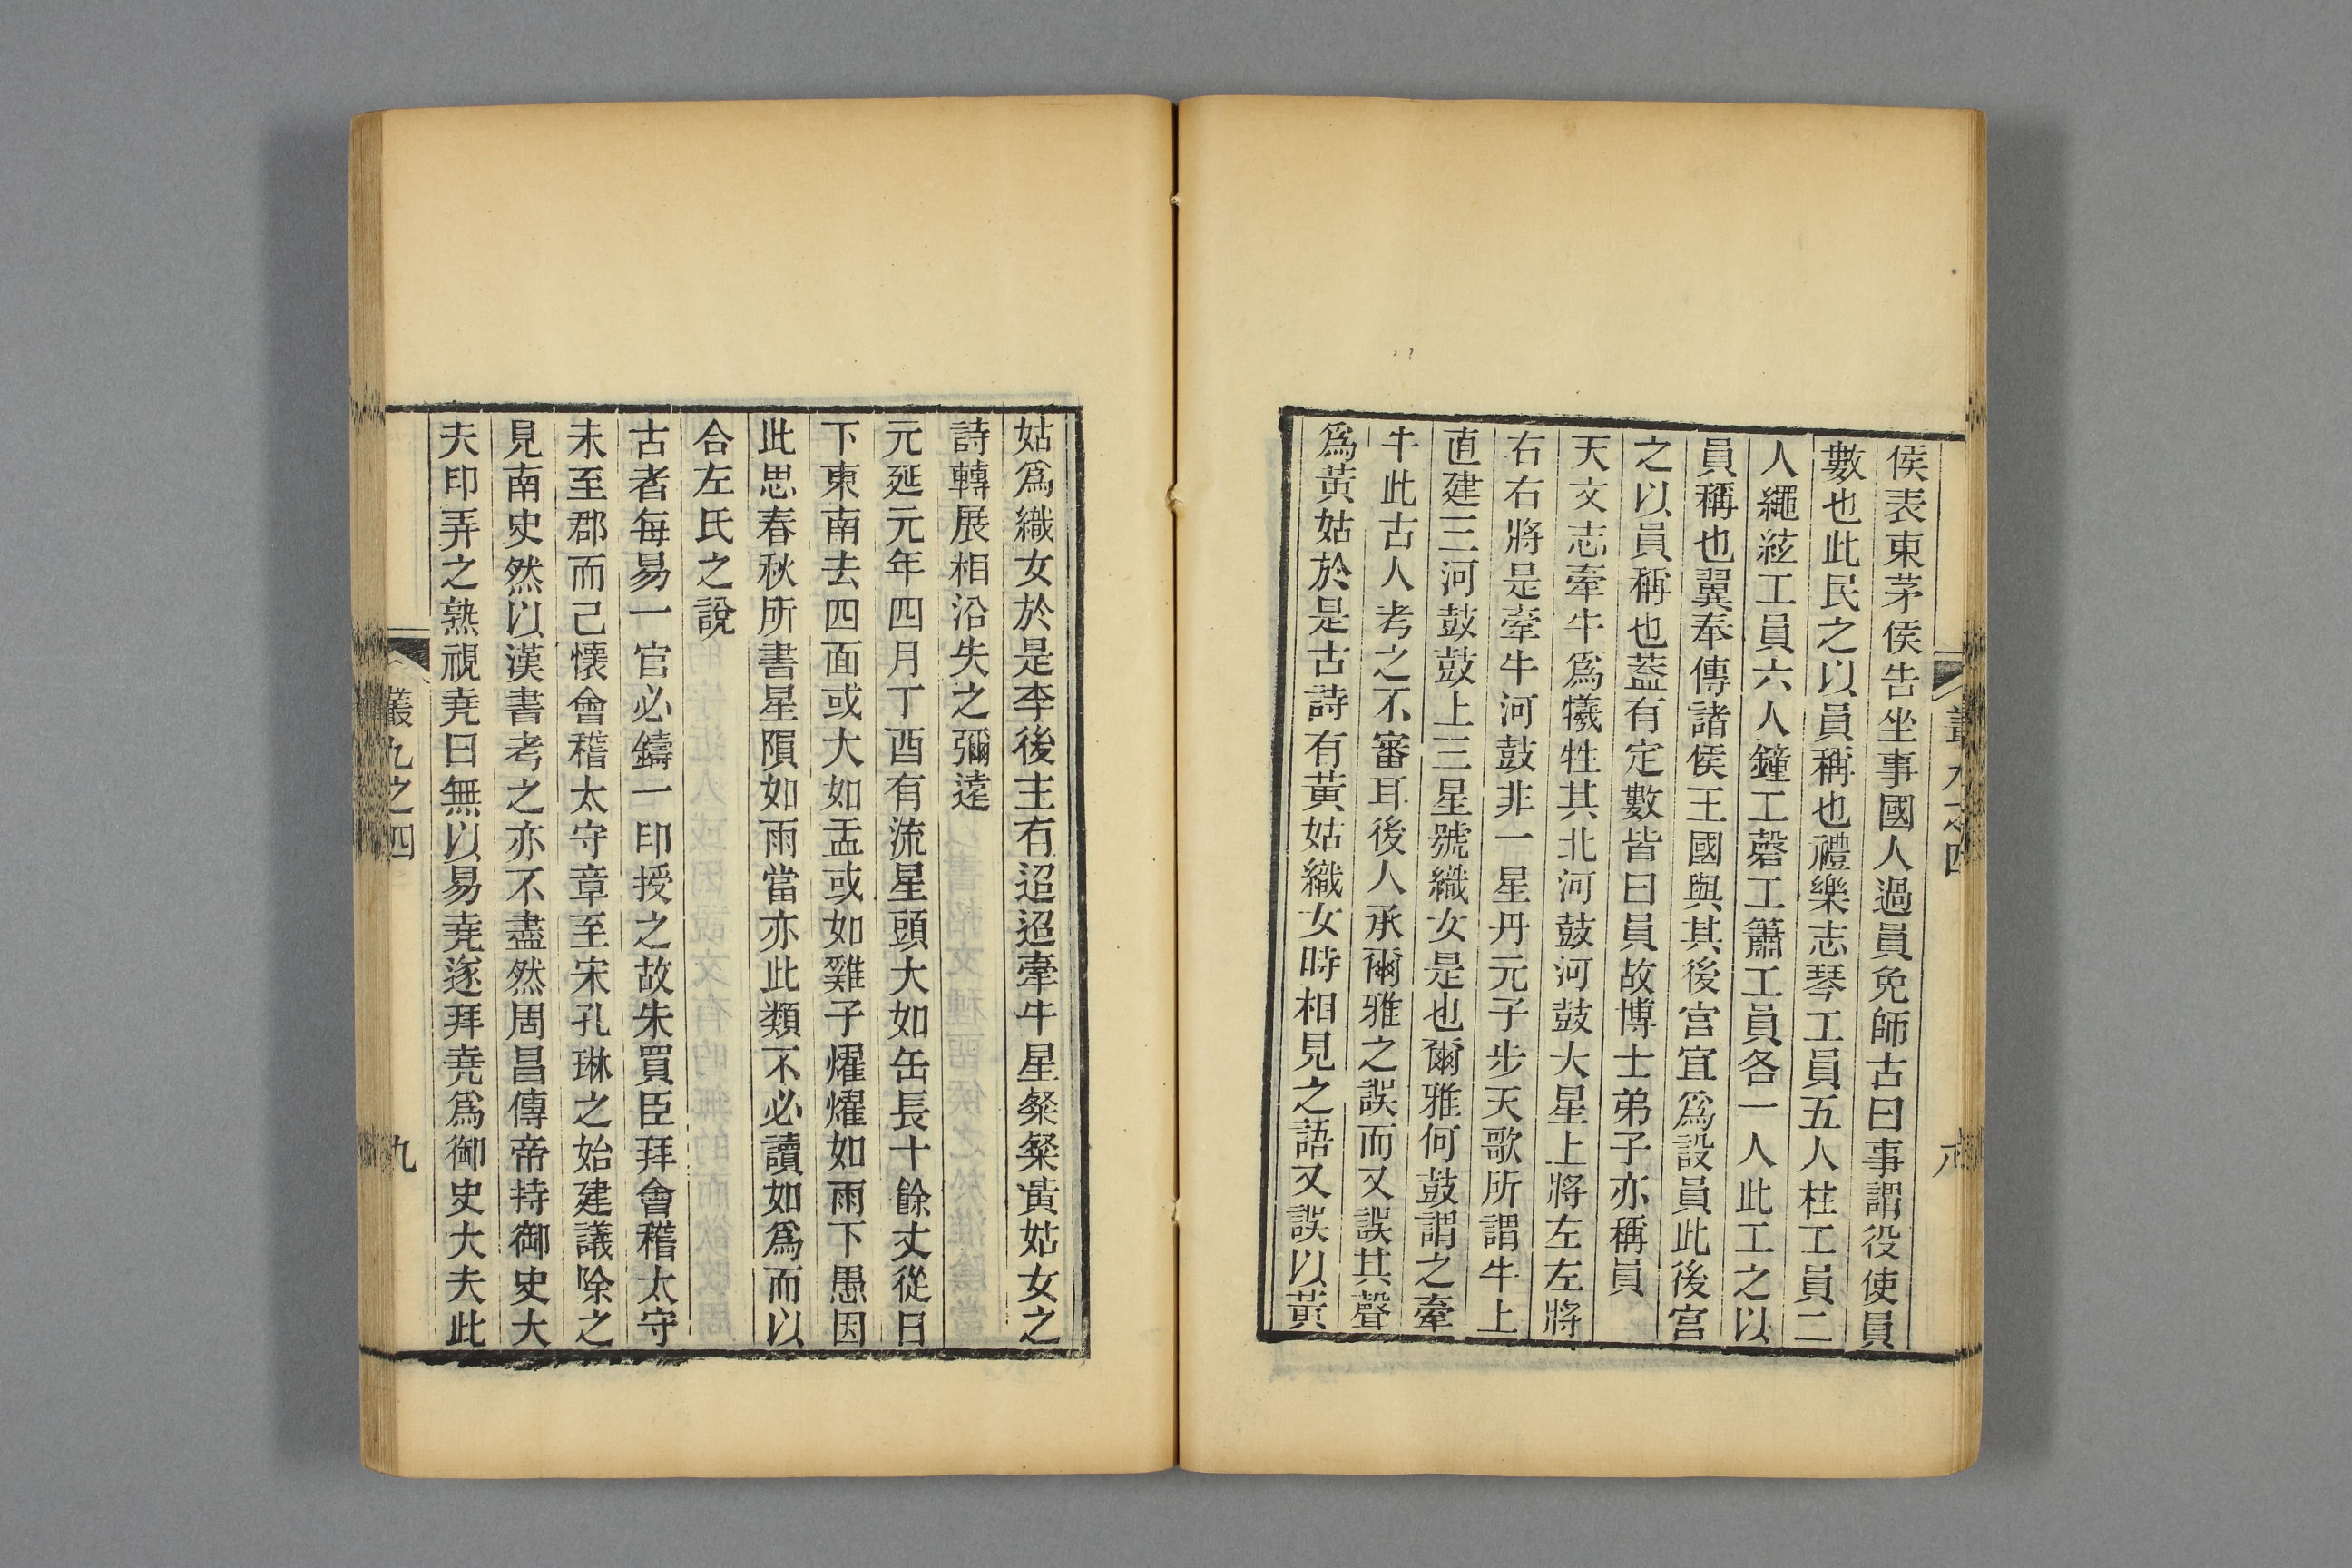 侯表東茅侯告坐事國人過員免師古曰事謂役使員
數也此民之以員稱也禮樂志琴工員五人柱工員二
人繩絃工員六人鐘工磬工簫工員各一人此工之以
員稱也翼奉傳諸侯王國與其後宮宜爲設員此後宮
之以員稱也葢有定數皆曰員故博士弟子亦稱員
天文志牽牛爲犧牲其北河鼓河鼓大星上將左左將
右右將是牽牛河鼓非一星丹元子步天歌所謂牛上
直建三河鼓鼓上三星號織女是也爾雅何鼓謂之牽
牛此古人考之不審耳後人承爾雅之誤而又誤其聲
爲黃姑於是古詩有黃姑織女時相見之語又誤以黃
姑爲織女於是李後主有迢迢牽牛星粲粲黃姑女之
詩轉展相沿失之彌遠
元延元年四月丁酉有流星頭大如缶長十餘丈從日
下東南去四面或大如盂或如雞子燿燿如雨下愚因
此思春秋所書星隕如雨當亦此類不必讀如爲而以
合左氏之說
古者每易一官必鑄一印授之故朱買臣拜會稽太守
未至郡而己懷會稽太守章至宋孔琳之始建議除之
見南史然以漢書考之亦不盡然周昌傳帝持御史大
夫印弄之熟視堯曰無以易堯遂拜堯爲御史大夫此
叢九之四
九